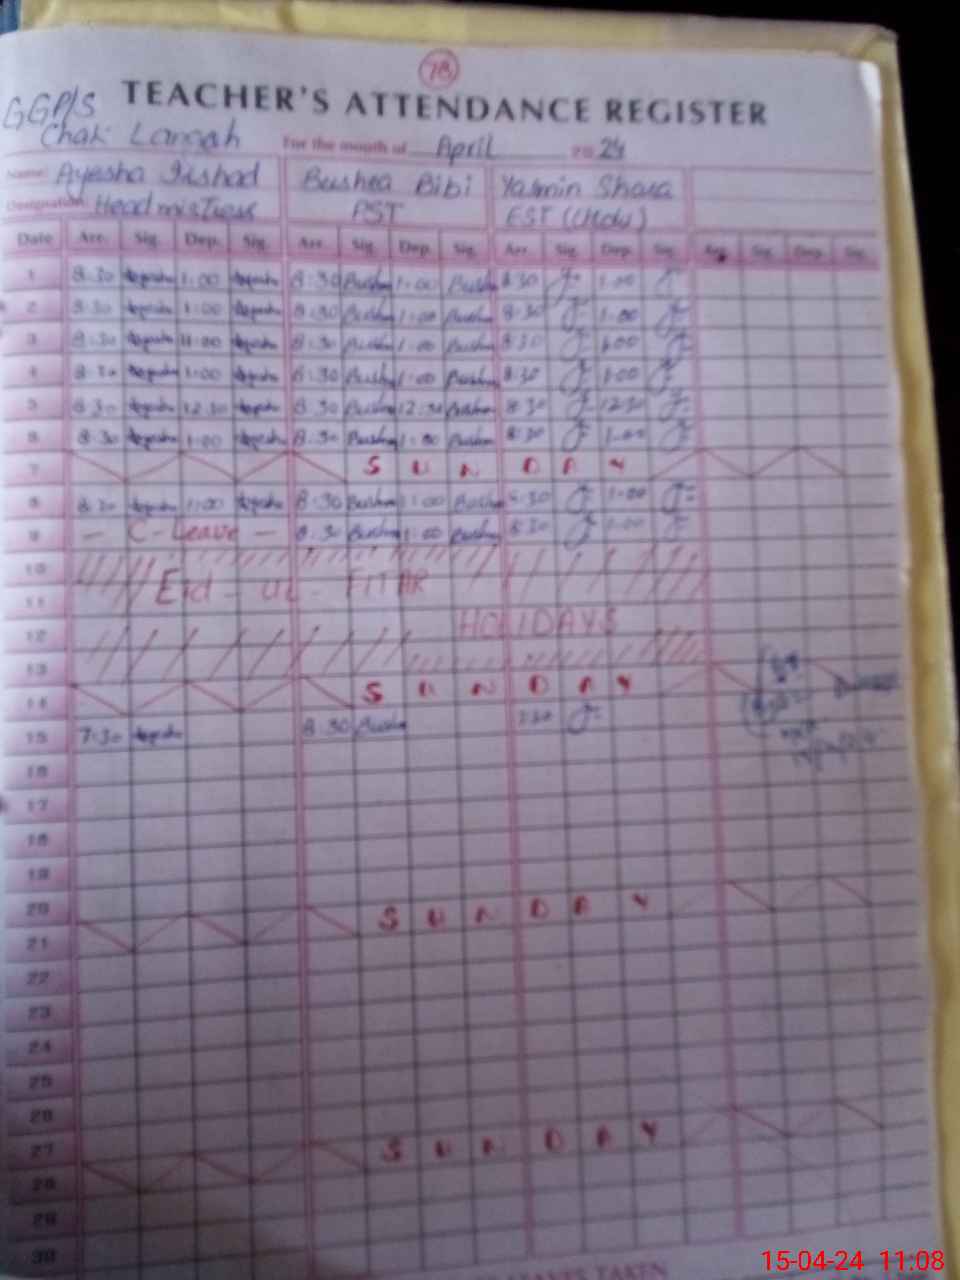 78
TEACHER'S ATTENDANCE REGISTER
GGP/S
Chak Langah
For the month of April 20 24
Name: Ayesha Irshad Bushra Bibi Yasmin Shara
Designation: Headmistress PST EST
Date Arr. Sig. Dep. Sig. Arr. Sig. Dep. Sig. Arr. Sig. Dep. Sig. Arr. Sig. Dep. Sig.
1 8:30 Ayesha 1:00 Ayesha 8:30 Bushra 1:00 Bushra 8:30 1:00
2 8:30 Ayesha 1:00 Ayesha 8:30 Bushra 1:00 Bushra 8:30 1:00
3 8:30 Ayesha 1:00 Ayesha 8:30 Bushra 1:00 Bushra 8:30 1:00
4 8:30 Ayesha 1:00 Ayesha 8:30 Bushra 1:00 Bushra 8:30 1:00
5 8:30 Ayesha 12:30 Ayesha 8:30 Bushra 12:30 Bushra 8:30 12:30
6 8:30 Ayesha 1:00 Ayesha 8:30 Bushra 1:00 Bushra 8:30 1:00
7 SUNDAY
8 8:30 Ayesha 1:00 Ayesha 8:30 Bushra 1:00 Bushra 8:30 1:00
9 - C-Leave - 8:30 Bushra 1:00 Bushra 8:30 1:00
10
11 Eid-ul-FITAR
12 HOLIDAYS
13
14 SUNDAY
15 7:30 Ayesha 8:30 Bushra 7:30
16
17
18
19
20
21 SUNDAY
22
23
24
25
26
27
28 SUNDAY
29
30
LEAVE TAKEN
15-04-24 11:08